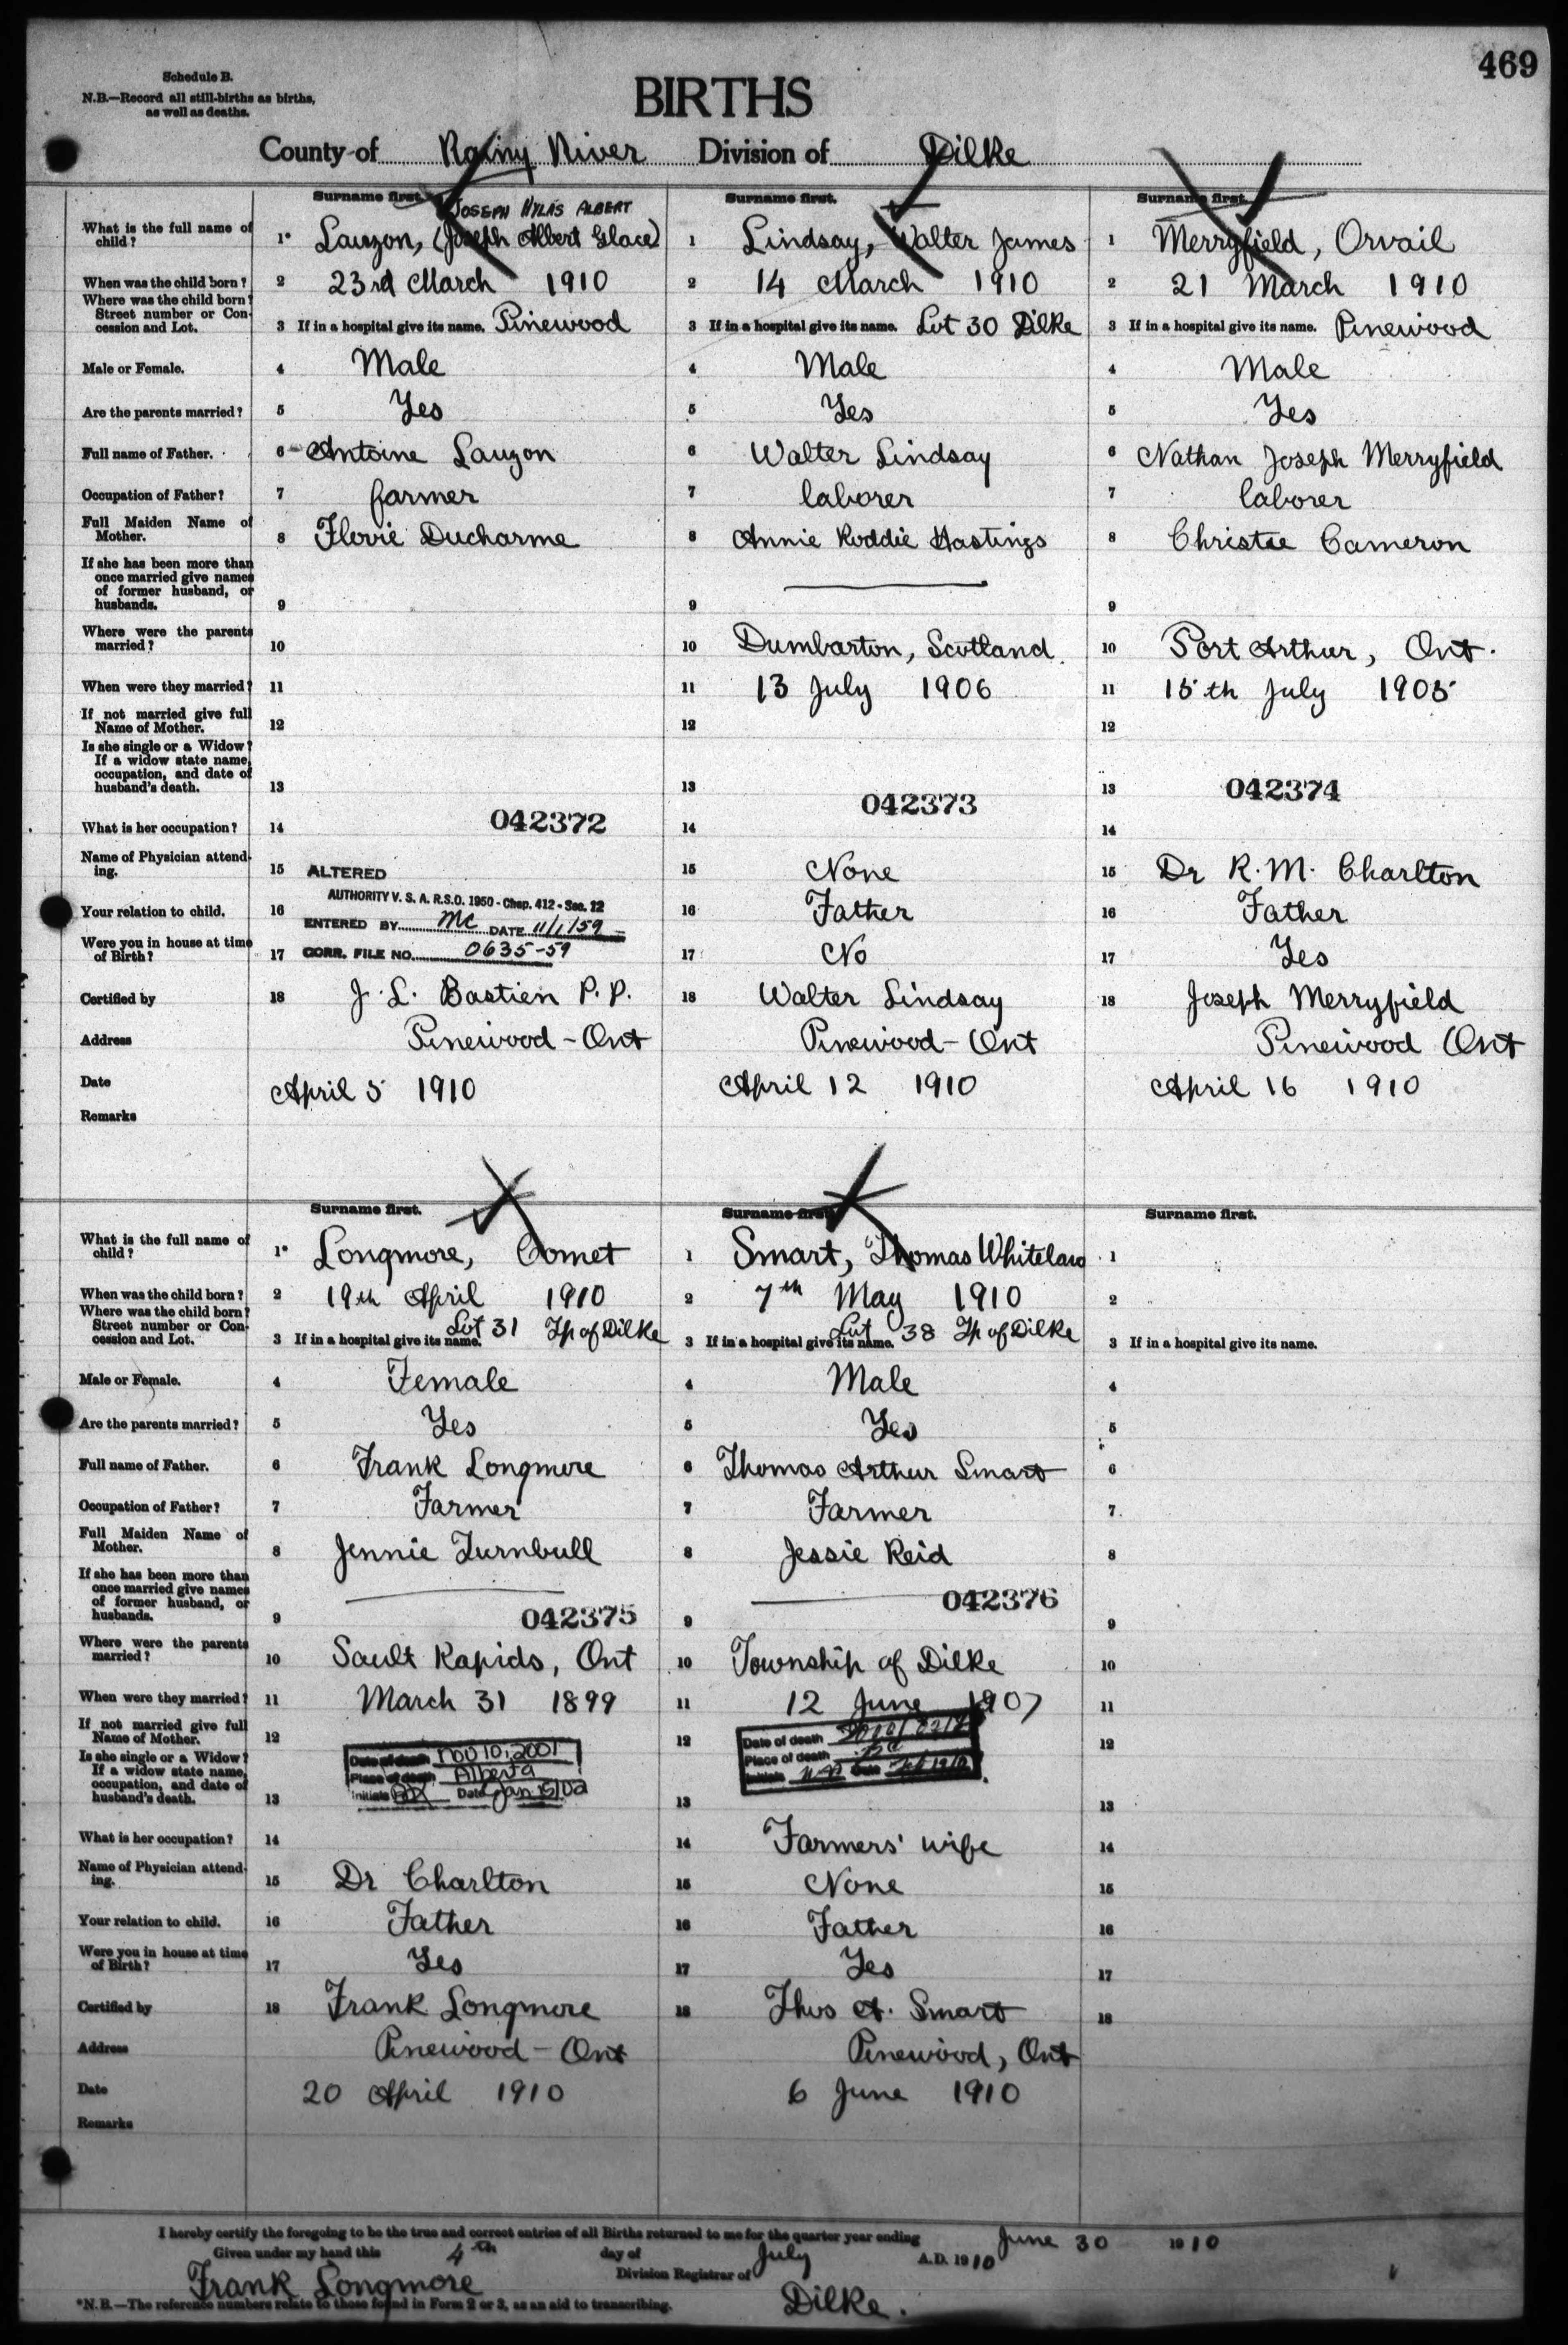 469
Schedule B.
N.B.—Record all still-births as births,
as well as deaths.
BIRTHS
County of Rainy River Division of Dilke
Surname first. Surname first. Surname first.
JOSEPH HYLAS ALBERT
What is the full name of child? 1* Lauzon, (Joseph Albert Glace) 1 Lindsay, Walter James 1 Merryfield, Orvail
When was the child born? 2 23rd March 1910 2 14 March 1910 2 21 March 1910
Where was the child born? Street number or Concession and Lot. 3 If in a hospital give its name. Pinewood 3 If in a hospital give its name. Lot 30 Dilke 3 If in a hospital give its name. Pinewood
Male or Female. 4 Male 4 Male 4 Male
Are the parents married? 5 Yes 5 Yes 5 Yes
Full name of Father. 6 Antoine Lauzon 6 Walter Lindsay 6 Nathan Joseph Merryfield
Occupation of Father? 7 farmer 7 laborer 7 laborer
Full Maiden Name of Mother. 8 Flovie Ducharme 8 Annie Roddie Hastings 8 Christie Cameron
If she has been more than once married give names of former husband, or husbands. 9 9 9
Where were the parents married? 10 10 Dumbarton, Scotland. 10 Port Arthur, Ont.
When were they married? 11 11 13 July 1906 11 15th July 1905
If not married give full Name of Mother. 12 12 12
Is she single or a Widow? If a widow state name, occupation, and date of husband's death. 13 13 042373 13 042374
What is her occupation? 14 042372 14 14
Name of Physician attending. 15 ALTERED 15 None 15 Dr R. M. Charlton
AUTHORITY V. S. A. R.S.O. 1950 - Chap. 412 - Sec. 22
Your relation to child. 16 ENTERED BY MC DATE 11/1/59 16 Father 16 Father
Were you in house at time of Birth? 17 CORR. FILE NO. 0635-59 17 No 17 Yes
Certified by 18 J. L. Bastien P.P. 18 Walter Lindsay 18 Joseph Merryfield
Address Pinewood - Ont Pinewood - Ont Pinewood Ont
Date April 5 1910 April 12 1910 April 16 1910
Remarks
Surname first. Surname first. Surname first.
What is the full name of child? 1* Longmore, Comet 1 Smart, Thomas Whitelaw 1
When was the child born? 2 19th April 1910 2 7th May 1910 2
Where was the child born? Street number or Concession and Lot. 3 If in a hospital give its name. Lot 31 Tp of Dilke 3 If in a hospital give its name. Lot 38 Tp of Dilke 3 If in a hospital give its name.
Male or Female. 4 Female 4 Male 4
Are the parents married? 5 Yes 5 Yes 5
Full name of Father. 6 Frank Longmore 6 Thomas Arthur Smart 6
Occupation of Father? 7 Farmer 7 Farmer 7
Full Maiden Name of Mother. 8 Jennie Turnbull 8 Jessie Reid 8
If she has been more than once married give names of former husband, or husbands. 9 042375 9 042376 9
Where were the parents married? 10 Sault Rapids, Ont 10 Township of Dilke 10
When were they married? 11 March 31 1899 11 12 June 1907 11
If not married give full Name of Mother. 12 12 12
Date of death Nov 10, 2001 Date of death
Place of death Alberta Place of death
Initials Date Jan 15/02 Initials Date
Is she single or a Widow? If a widow state name, occupation, and date of husband's death. 13 13 13
What is her occupation? 14 14 Farmers' wife 14
Name of Physician attending. 15 Dr Charlton 15 None 15
Your relation to child. 16 Father 16 Father 16
Were you in house at time of Birth? 17 Yes 17 Yes 17
Certified by 18 Frank Longmore 18 Thos A. Smart 18
Address Pinewood - Ont Pinewood, Ont
Date 20 April 1910 6 June 1910
Remarks
I hereby certify the foregoing to be the true and correct entries of all Births returned to me for the quarter year ending June 30 1910
Given under my hand this 4th day of July A.D. 1910
Frank Longmore Division Registrar of Dilke.
*N.B.—The reference numbers relate to those found in Form 2 or 3, as an aid to transcribing.